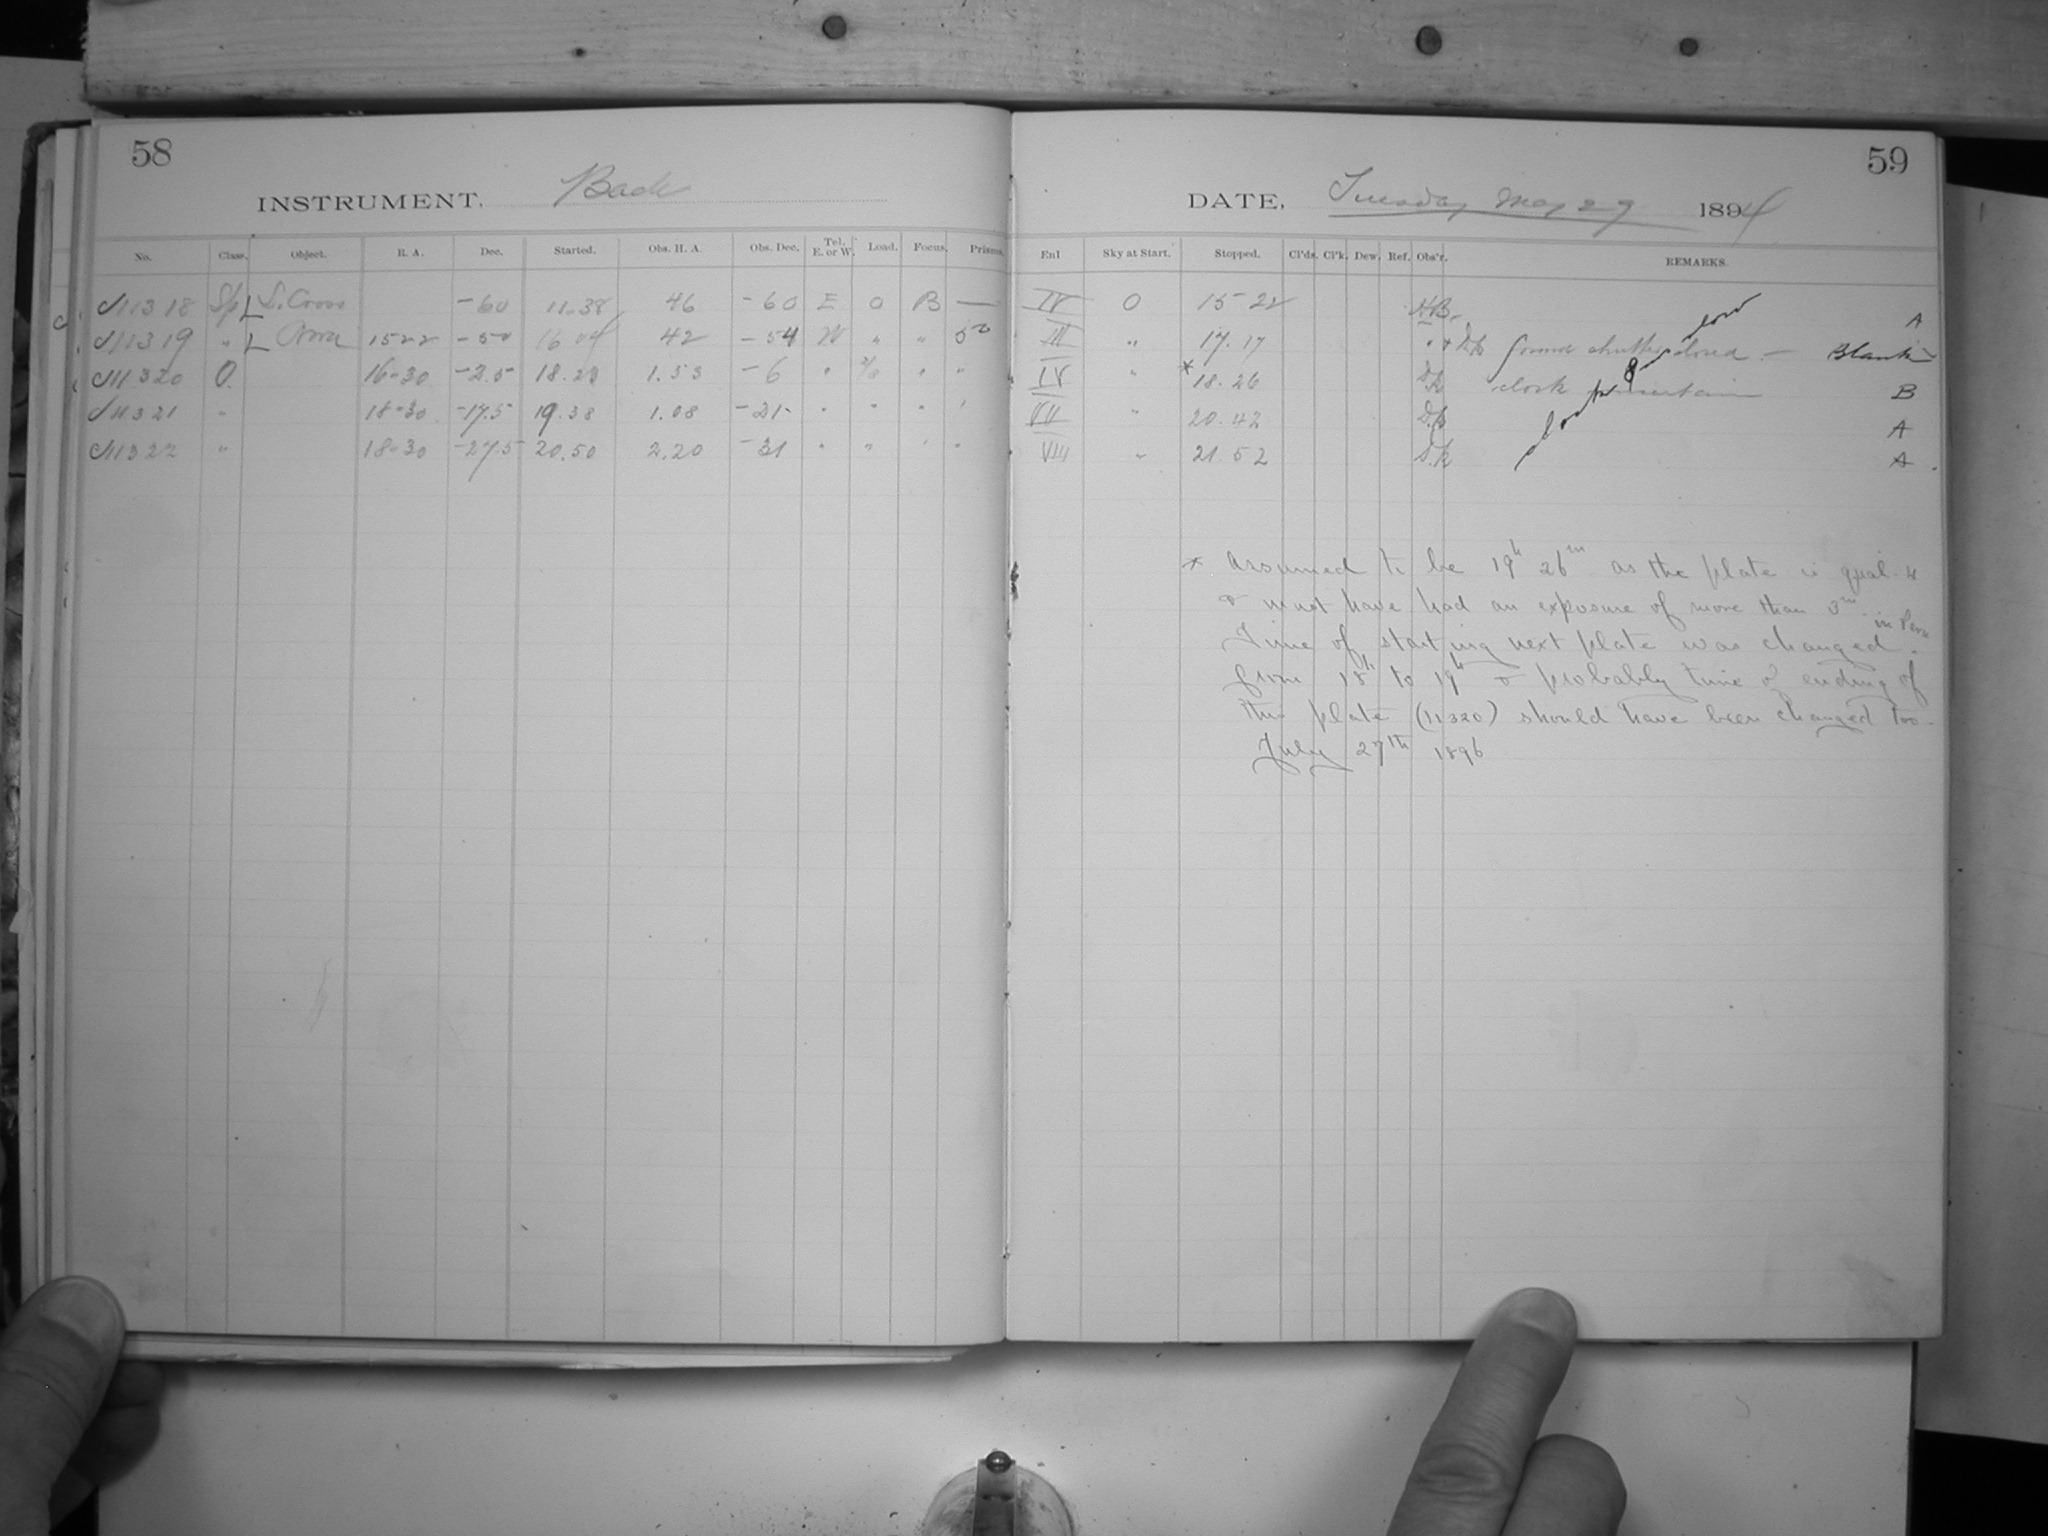 58
INSTRUMENT. Bache
No. Class. Object. R. A. Dec. Started. Obs. H. A. Obs. Dec. Tel. E. or W. Load. Focus. Prisms.
11318 Sp L S. Cross -60 11.38 46 -60 E O B —
11319 " L Norma 1522 -50 16 04 42 -54 W " " 50
11320 O. 16-30 -2.5 18.23 1.53 -6 " " "
11321 " 18-30 -17.5 19.38 1.08 -21- " " " '
11322 " 18-30 -27.5 20.50 2.20 -31 " " ' "
59
DATE, Tuesday May 29 1894
Enl Sky at Start. Stopped. Cl'ds. Cl'k. Dew. Ref. Obs'r. REMARKS.
IV O 15-22 A
III " 17.17 found shutter closed — Blank
IV " * 18.26 clock uncertain B
VII " 20.42 A
VIII " 21.52 A
* Assumed to be 19h 26m as the plate is qual. 4
& must have had an exposure of more than 3m in Peru
Time of starting next plate was changed
from 18h to 19h & probably time of ending of
this plate (11320) should have been changed too.
July 27th 1896